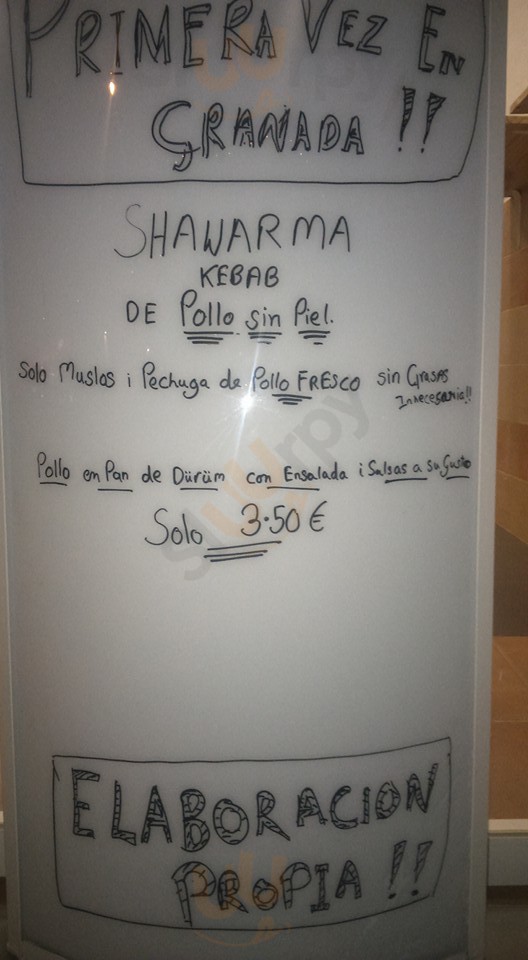 PRIMERA VEZ EN
GRANADA !!
SHAWARMA
KEBAB
DE Pollo sin Piel.
Solo Muslos i Pechuga de Pollo FRESCO sin Grasas
Innecesaria!!
Pollo en Pan de Dürüm con Ensalada i Salsas a su Gusto
Solo 3.50 €
ELABORACION
PROPIA !!
Sluurpy